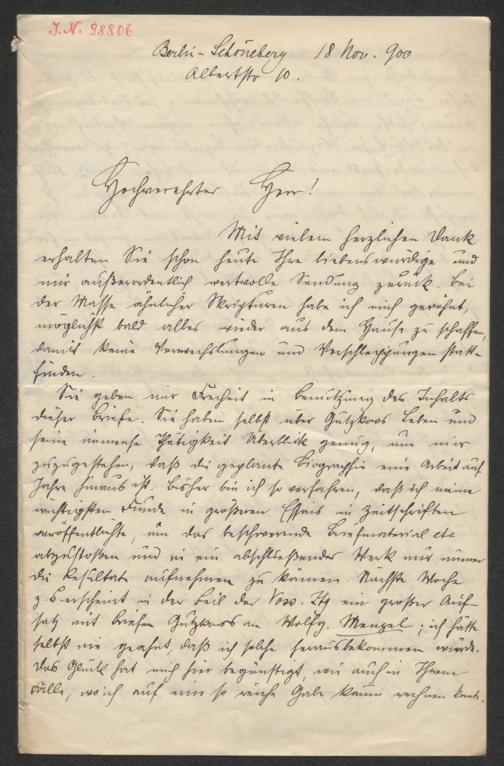 J.N. 98806
Berlin-Schöneberg 18 Nov. 900
Albertstr 10.
Hochverehrter Herr!
Mit vielem herzlichen Dank
erhalten Sie schon heute Ihre liebenswürdige und
mir außerordentlich wertvolle Sendung zurück. Bei
der Masse ähnlicher Skripturen habe ich mich gewöhnt,
möglichst bald alles wieder aus dem Hause zu schaffen,
damit keine Verwechslungen und Verschleppungen statt-
finden.
Sie geben mir Freiheit in Benutzung des Inhalts
dieser Briefe. Sie haben selbst über Gutzkows Leben und
seine immense Thätigkeit Überblick genug, um mir
zuzugestehen, daß die geplante Biographie eine Arbeit auf
Jahre hinaus ist. Bisher bin ich so verfahren, daß ich meine
wichtigsten Funde in größeren Essais in Zeitschriften
veröffentlichte, um das beschwerende Briefmaterial etc
abzustoßen und in ein abschließendes Werk nur immer
die Resultate aufnehmen zu können. Nächste Woche
z. B. erscheint in der Beil der Voss. Ztg ein großer Auf-
satz mit Briefen Gutzkows an Wolfg. Menzel; ich hätte
selbst nie geahnt, daß ich solche herausbekommen würde.
Das Glück hat mich hier begünstigt, wie auch in Ihrem
Falle, wo ich auf eine so reiche Gabe kaum rechnen konnte.